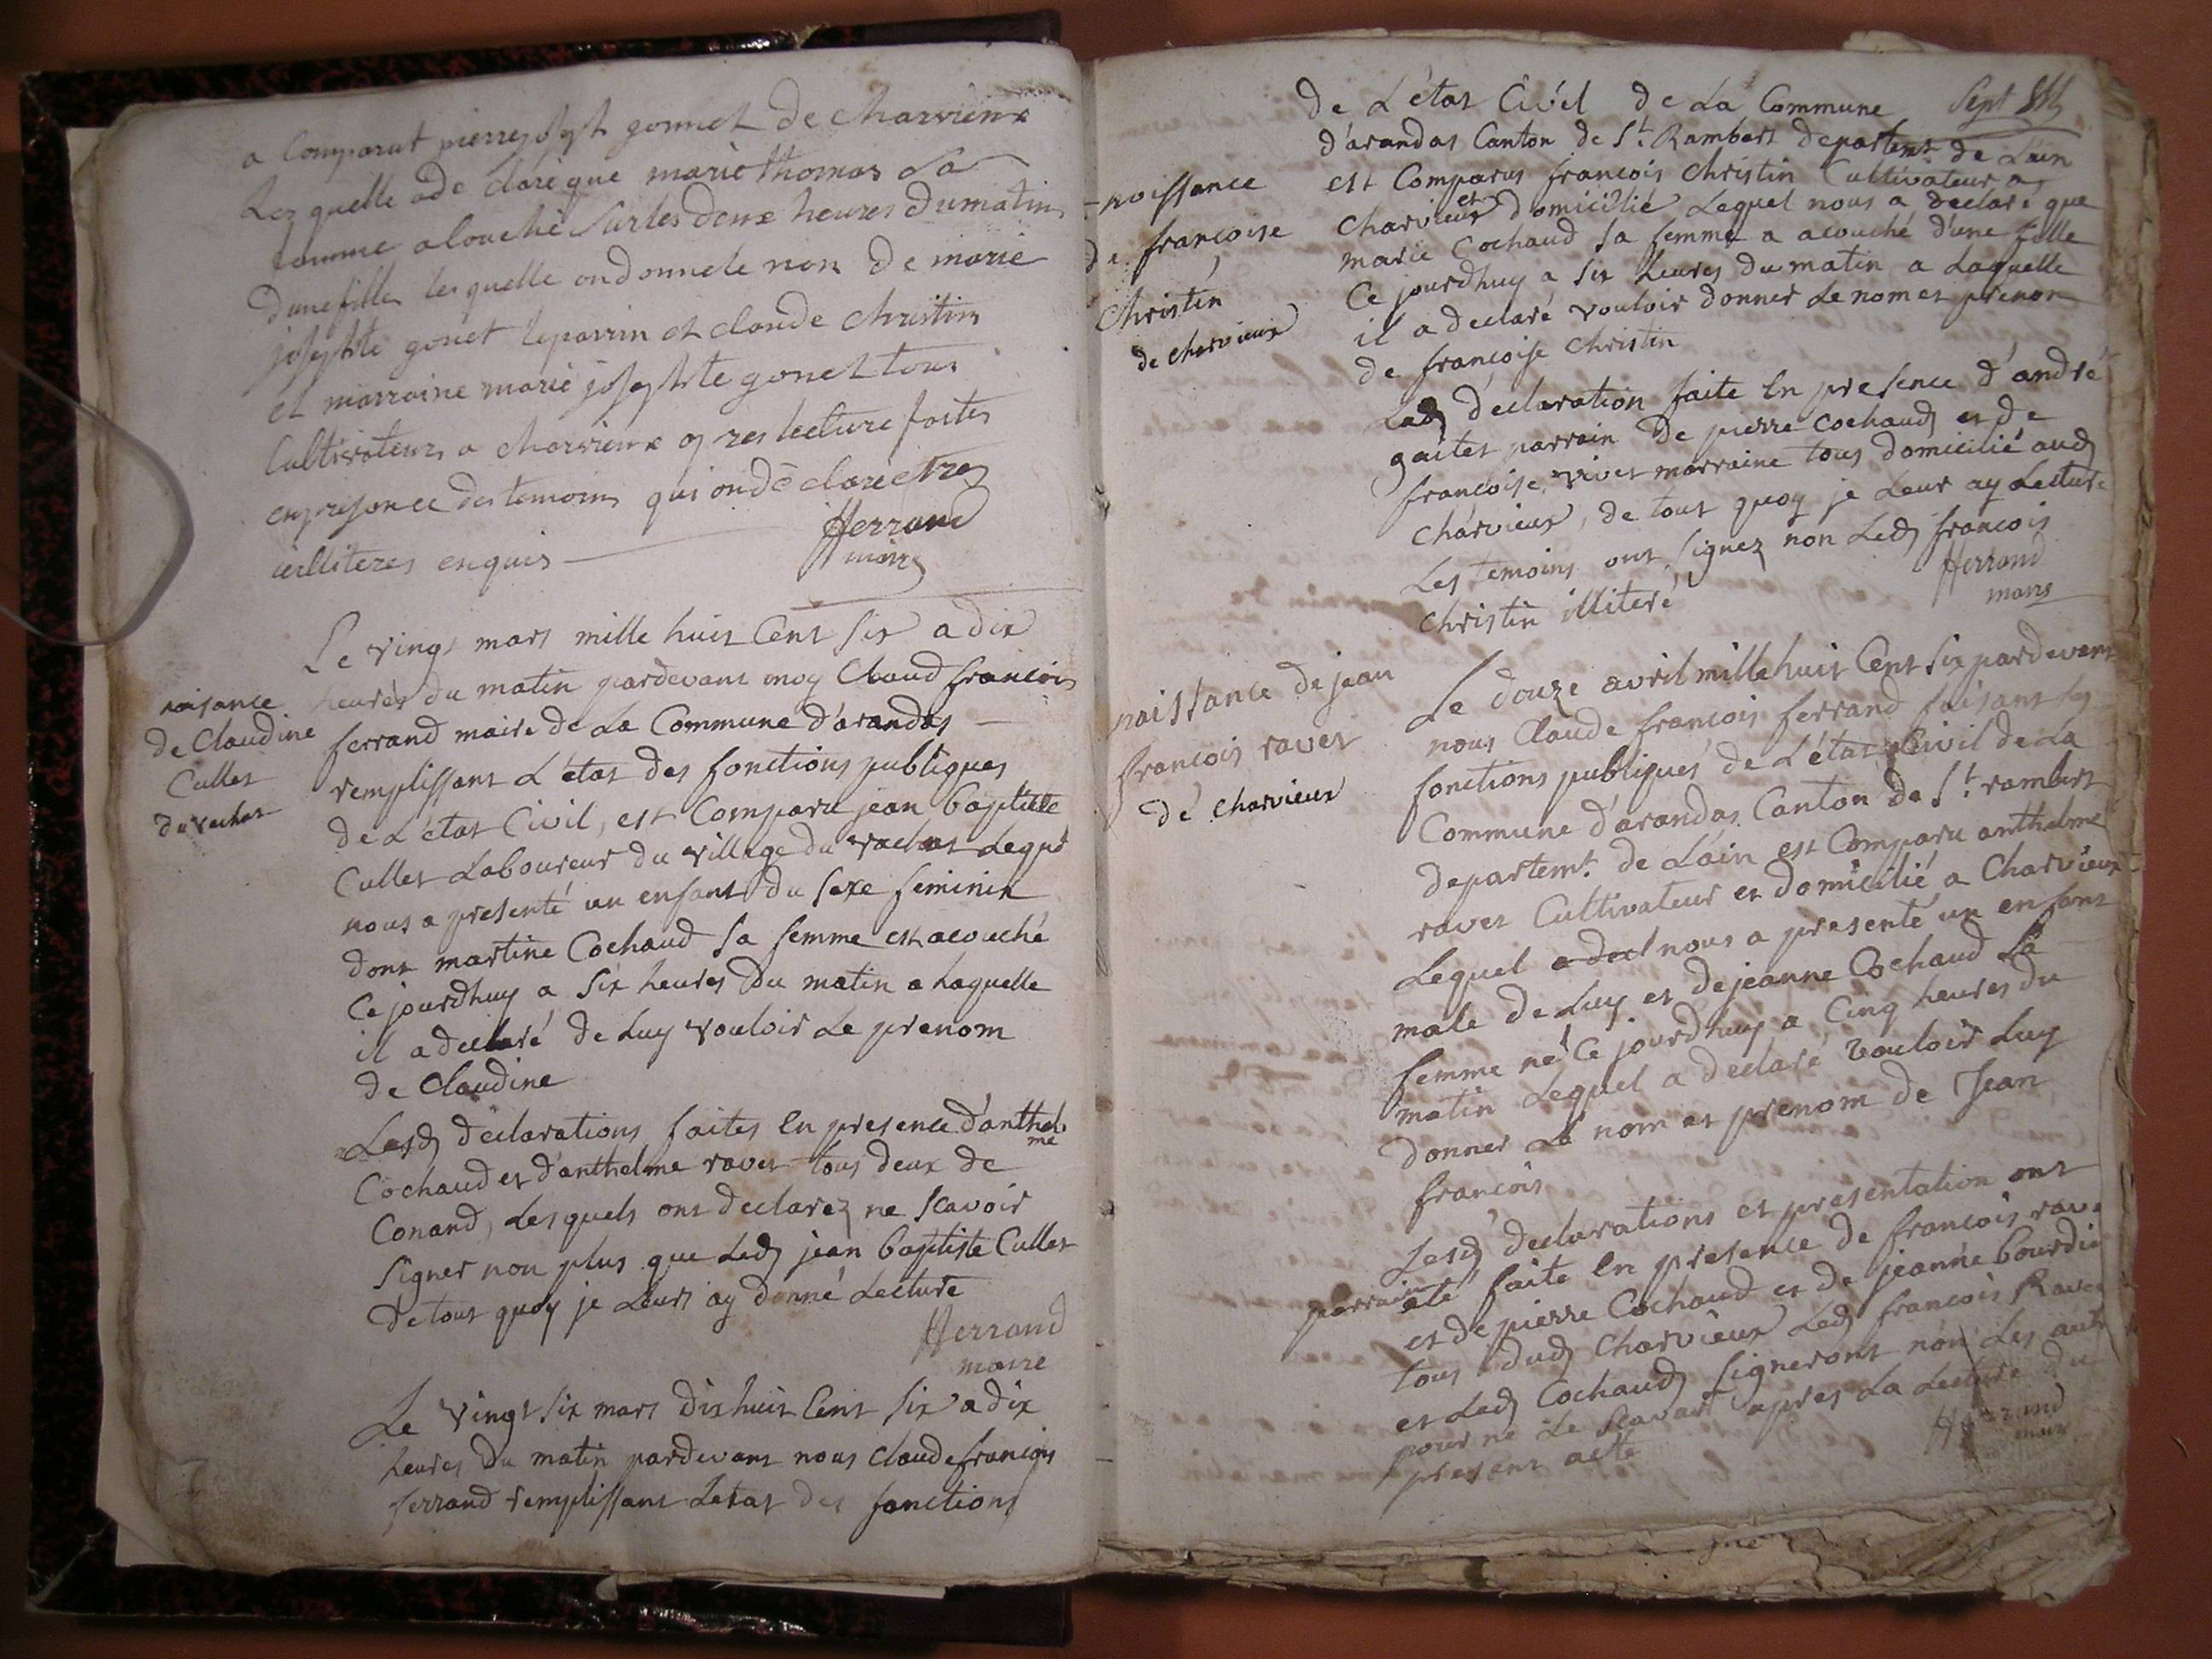 a Comparut pierre joseph gonnet de charvieux
Lez quelle a de claré que marie thomas sa
famme a louché sur les deux heures du matin
d'une fille les quelle on donne le non de marie
josephte gonet le parrin et claude christin
et marraine marie josephte gonet tous
Cultivateurs a charvieux apres lecture faites
en presence des temoins qui on dé claré etre
illiteres enquis
ferrand
maire
naisance
de Claudine
Cullet
du vachat
Le vingt mars mille huit Cent six a dix
heures du matin pardevant moy Claud francois
ferrand maire de La Commune d'arandas
remplissant L'état des fonctions publiques
de L'état Civil, est Comparu jean baptiste
Cullet Laboureur du village du vachat Lequel
nous a presenté un enfant du sexe feminin
dont martine Cochaud sa femme est acouché
Ce jourdhuy a six heures du matin a Laquelle
il a declaré de Luy vouloir Le prenom
de Claudine
Lesd declarations faites En presence d'anthel
me
Cochaud et d'anthelme ravet tous deux de
Conand, Lesquels ont declarez ne scavoir
signer non plus que Led jean baptiste Cullet
de tout quoy je Leurs ay donné Lecture
ferrand
maire
Le vingt six mars dix huit Cent six a dix
heures du matin pardevant nous claude francois
ferrand remplissant Letat des fonctions
Sept
de L'état Civil de La Commune
d'arandas Canton de St. Rambert departemt. de L'ain
est Comparus francois christin Cultivateur a
et
charvieux domicilié Lequel nous a declaré que
marie Cochaud sa femme a acouché d'une fille
Ce jourdhuy a six heures du matin a Laquelle
il a declaré vouloir donner Le nom et prenom
de francoise christin
naissance
de francoise
Christin
de charvieux
Lad declaration faite En presence d'andré
gaitet parrain de pierre Cochaud et de
francoise vivet marraine tous domicilié aud
charvieux, de tout quoy je Leur ay Lecture
Les temoins ont signez non Led francois
christin illiteré
ferrand
maire
naissance de jean
francois ravet
de charvieux
Le douze avril mille huit Cent six pardevant
nous Claude francois ferrand faisant les
fonctions publiques de L'état Civil de La
Commune d'arandas Canton de St. rambert
departemt. de L'ain est Comparu anthelme
ravet Cultivateur et domicilié a Charvieux
Lequel a decl nous a presenté un enfant
male de Luy et de jeanne Cochaud sa
femme né Ce jourdhuy a Cinq heures du
matin Lequel a declaré vouloir Luy
donner Le nom et prenom de Jean
francois
Lesd declarations et presentation ont
eté faite En presence de francois rave
parrain
et de pierre Cochaud et de jeanne bourdi
tous dud Charvieux Led francois Rave
et Led Cochaud signeront non Les aut
pour ne Le scavoir apres La Lecture du
present acte
ferrand
maire